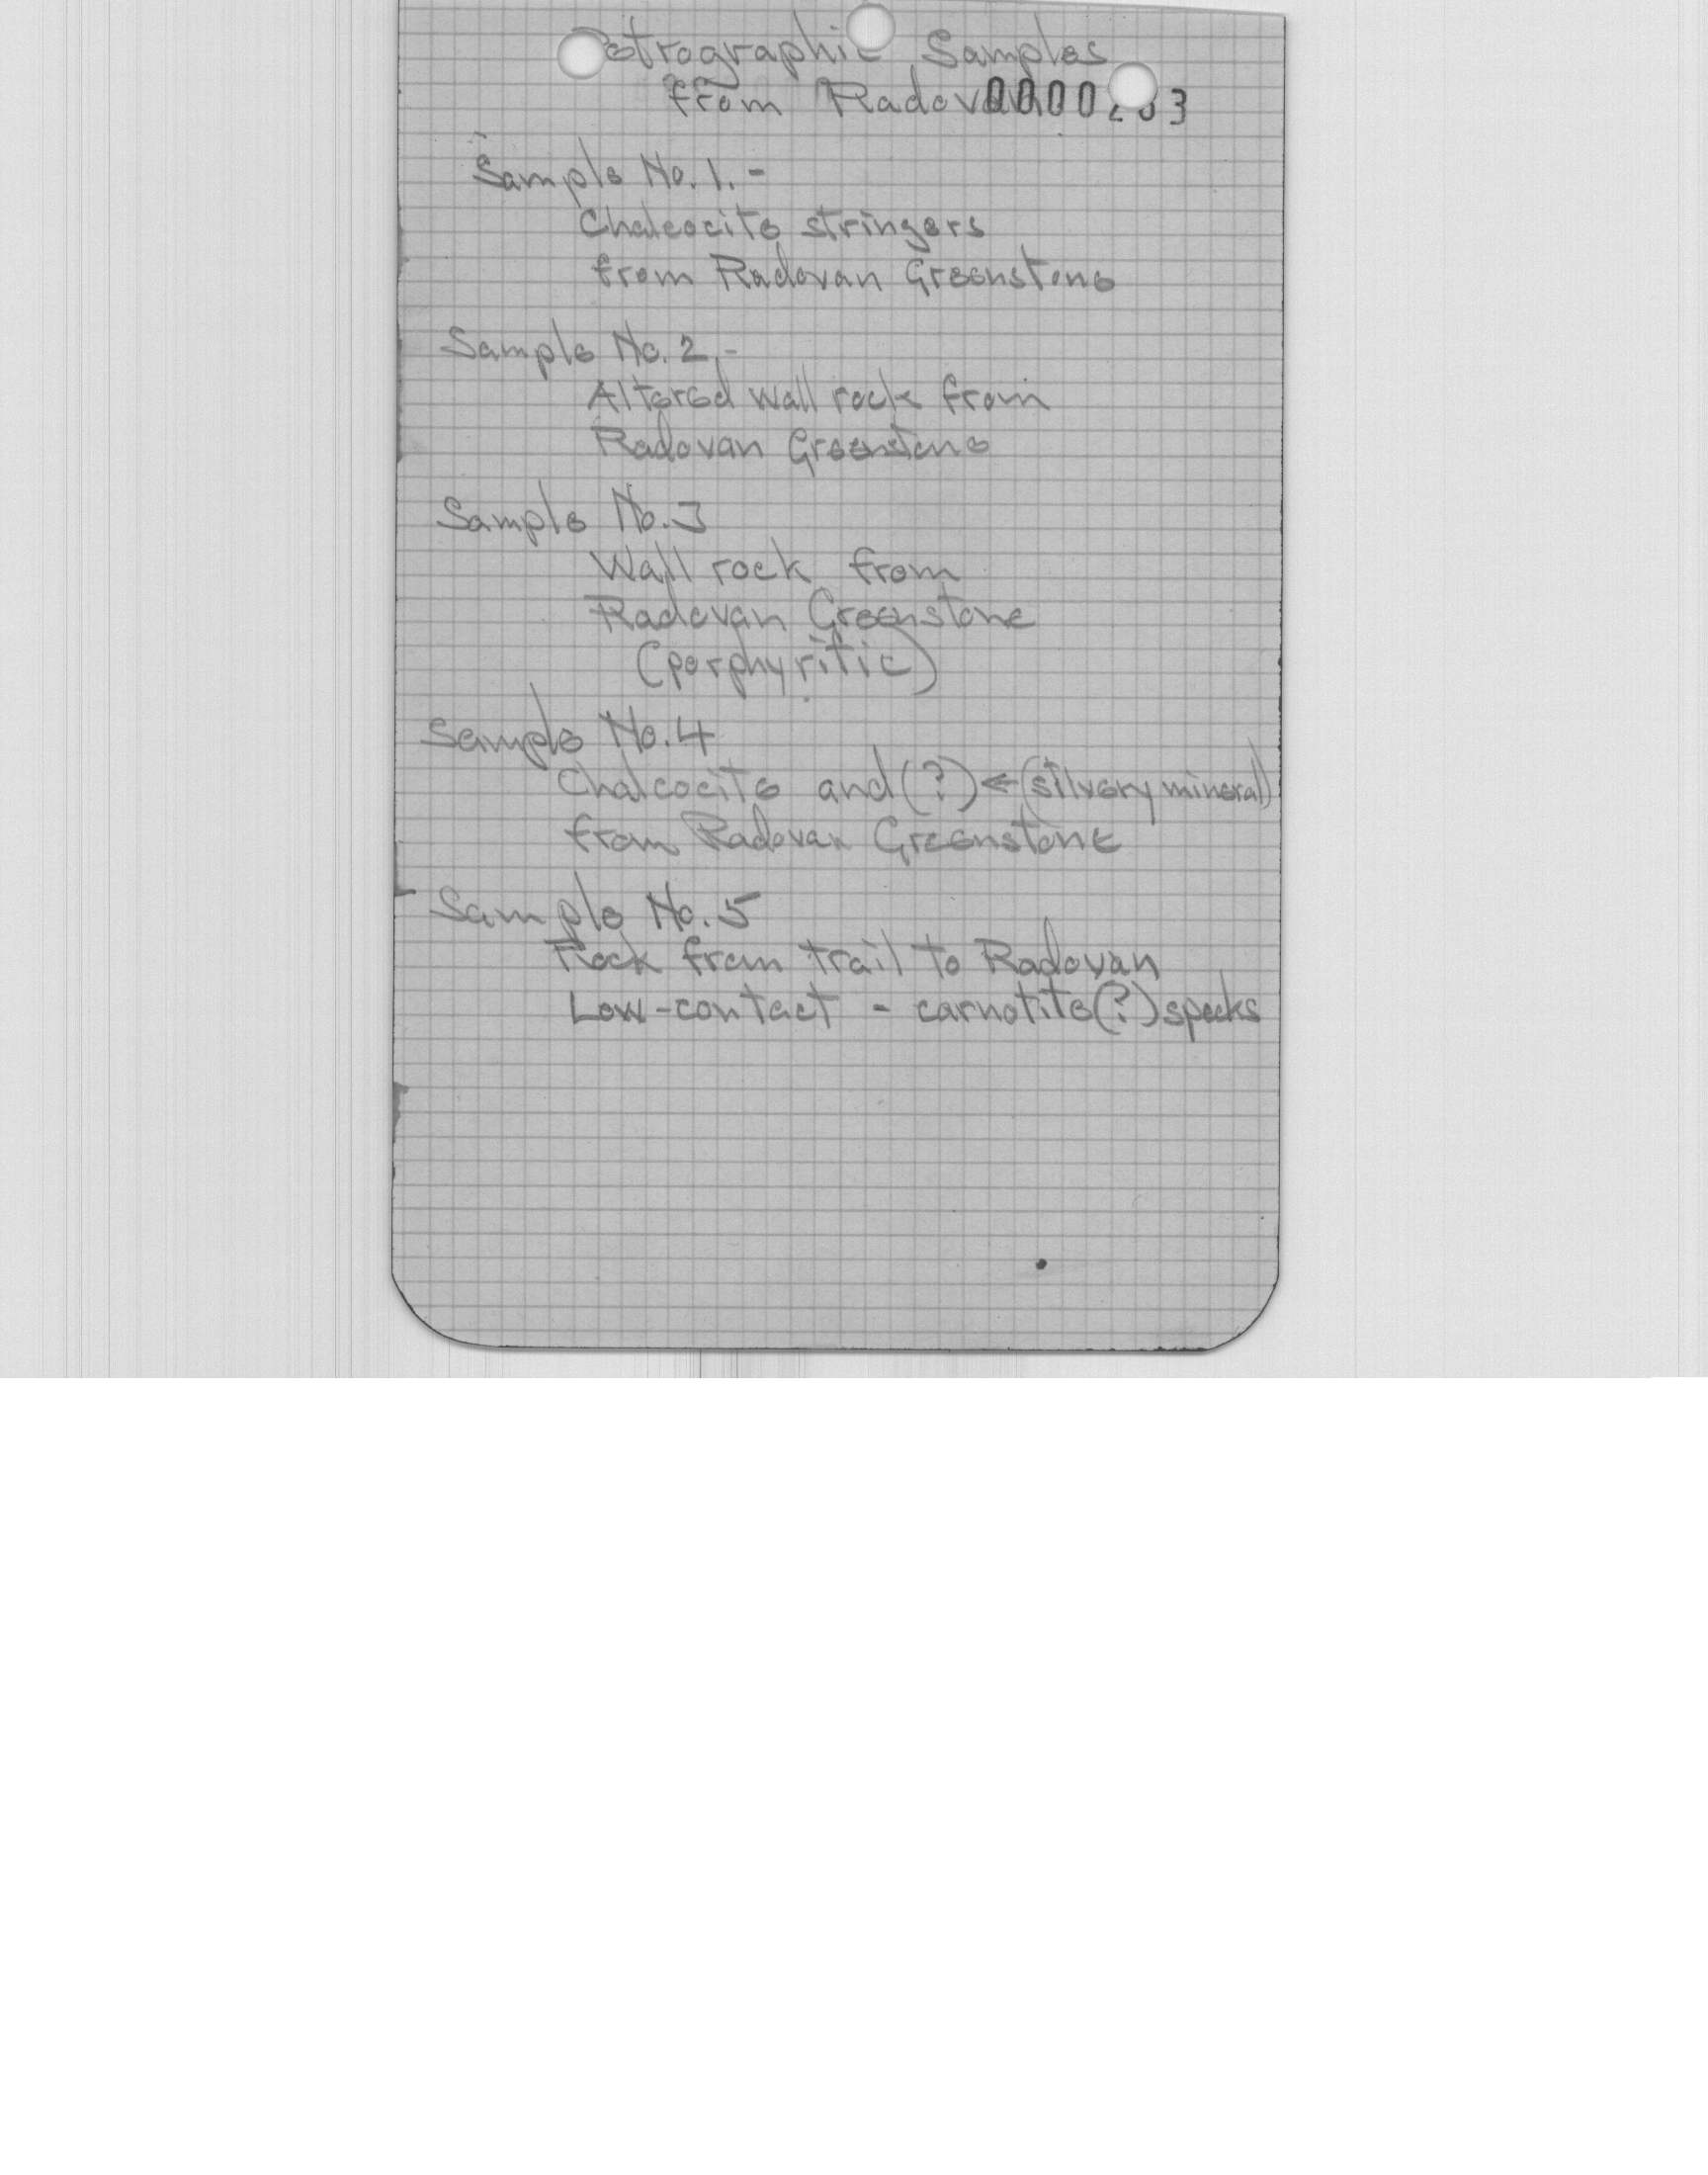 Petrographic Samples
from Radovan 0000203
Sample No. 1. -
Chalcocite stringers
from Radovan Greenstone
Sample No. 2. -
Altered wall rock from
Radovan Greenstone
Sample No. 3
Wall rock from
Radovan Greenstone
(porphyritic)
Sample No. 4
Chalcocite and (?) ← (silvery mineral)
from Radovan Greenstone
Sample No. 5
Rock from trail to Radovan
Low-contact - carnotite(?) specks